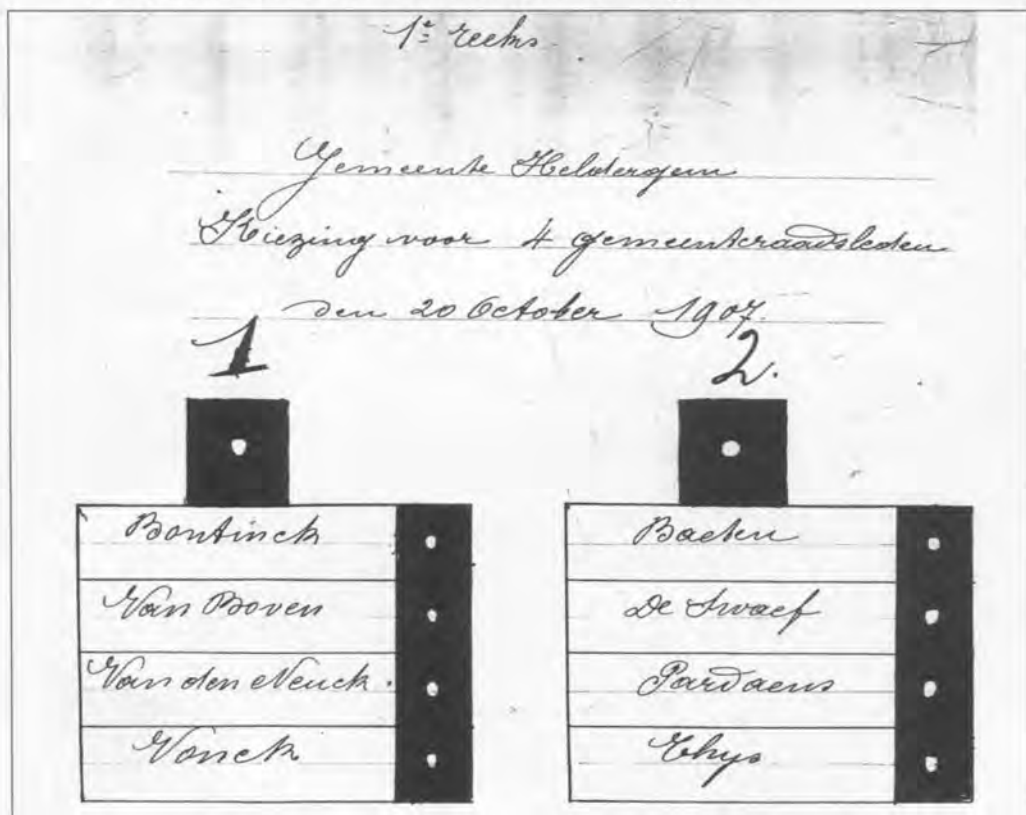 1e reeks.
Gemeente Heldergem
Kiezing voor 4 gemeenteraadsleden
den 20 October 1907.
1
2.
Bontinck
Van Boven
Van den Neuck.
Vonck
Baeten
De Swaef
Pardaens
Thys